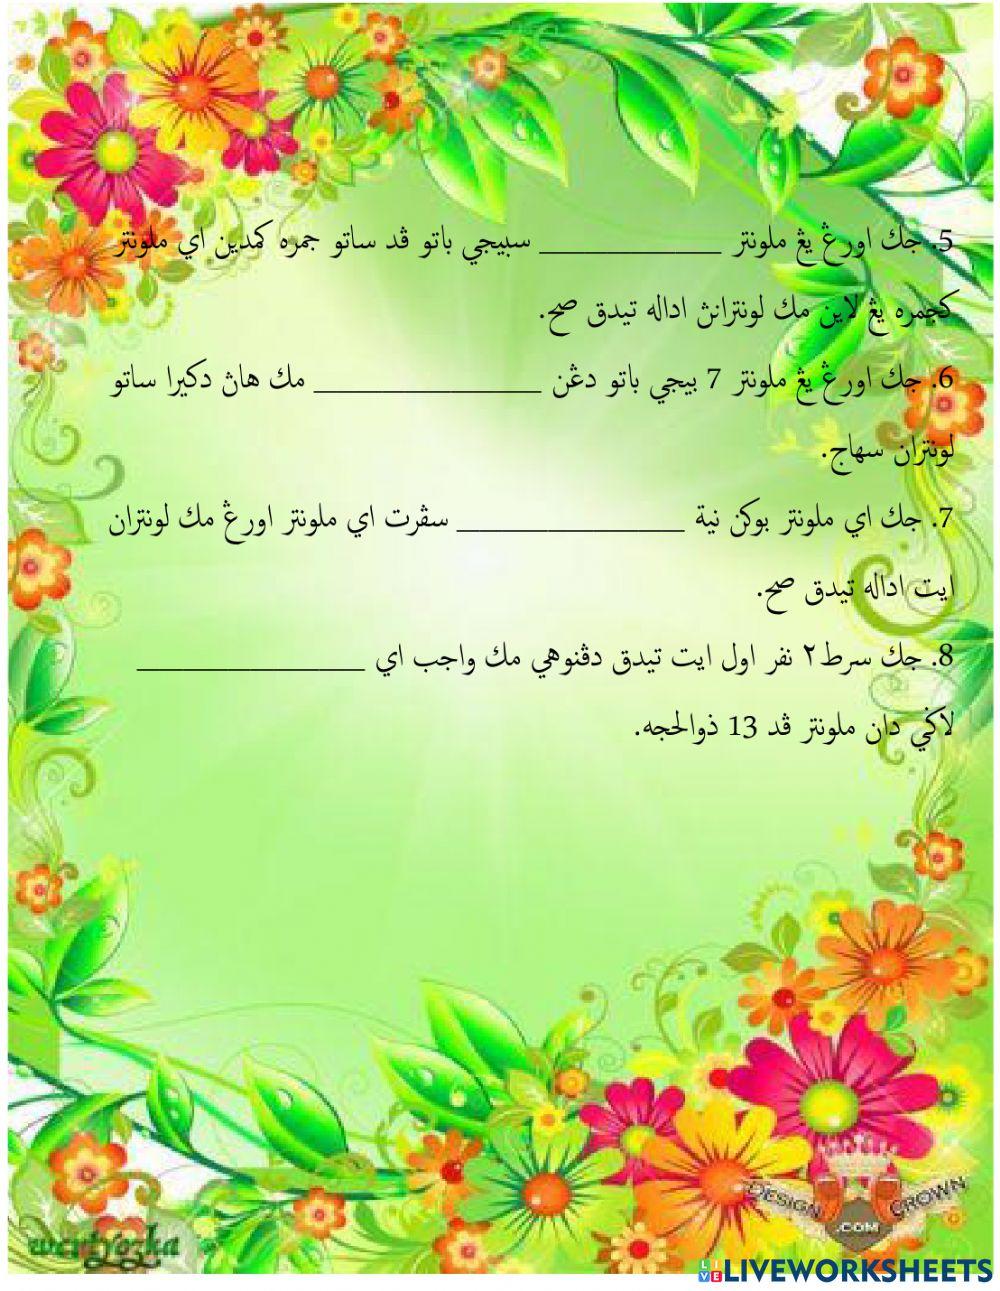 5. جك اورڠ يڠ ملونتر ____________ سبيجي باتو ڤد ساتو جمره كمدين اي ملونتر
كجمره يڠ لاين مك لونترانڽ اداله تيدق صح.
6. جك اورڠ يڠ ملونتر 7 بيجي باتو دڠن _______________ مك هاڽ دكيرا ساتو
لونتران سهاج.
7. جك اي ملونتر بوكن نية _______________ سڤرت اي ملونتر اورڠ مك لونتران
ايت اداله تيدق صح.
8. جك سرط٢ نفر اول ايت تيدق دڤنوهي مك واجب اي _______________
لاݢي دان ملونتر ڤد 13 ذوالحجه.
DESIGN CROWN
.COM
wertyozka
LIVEWORKSHEETS